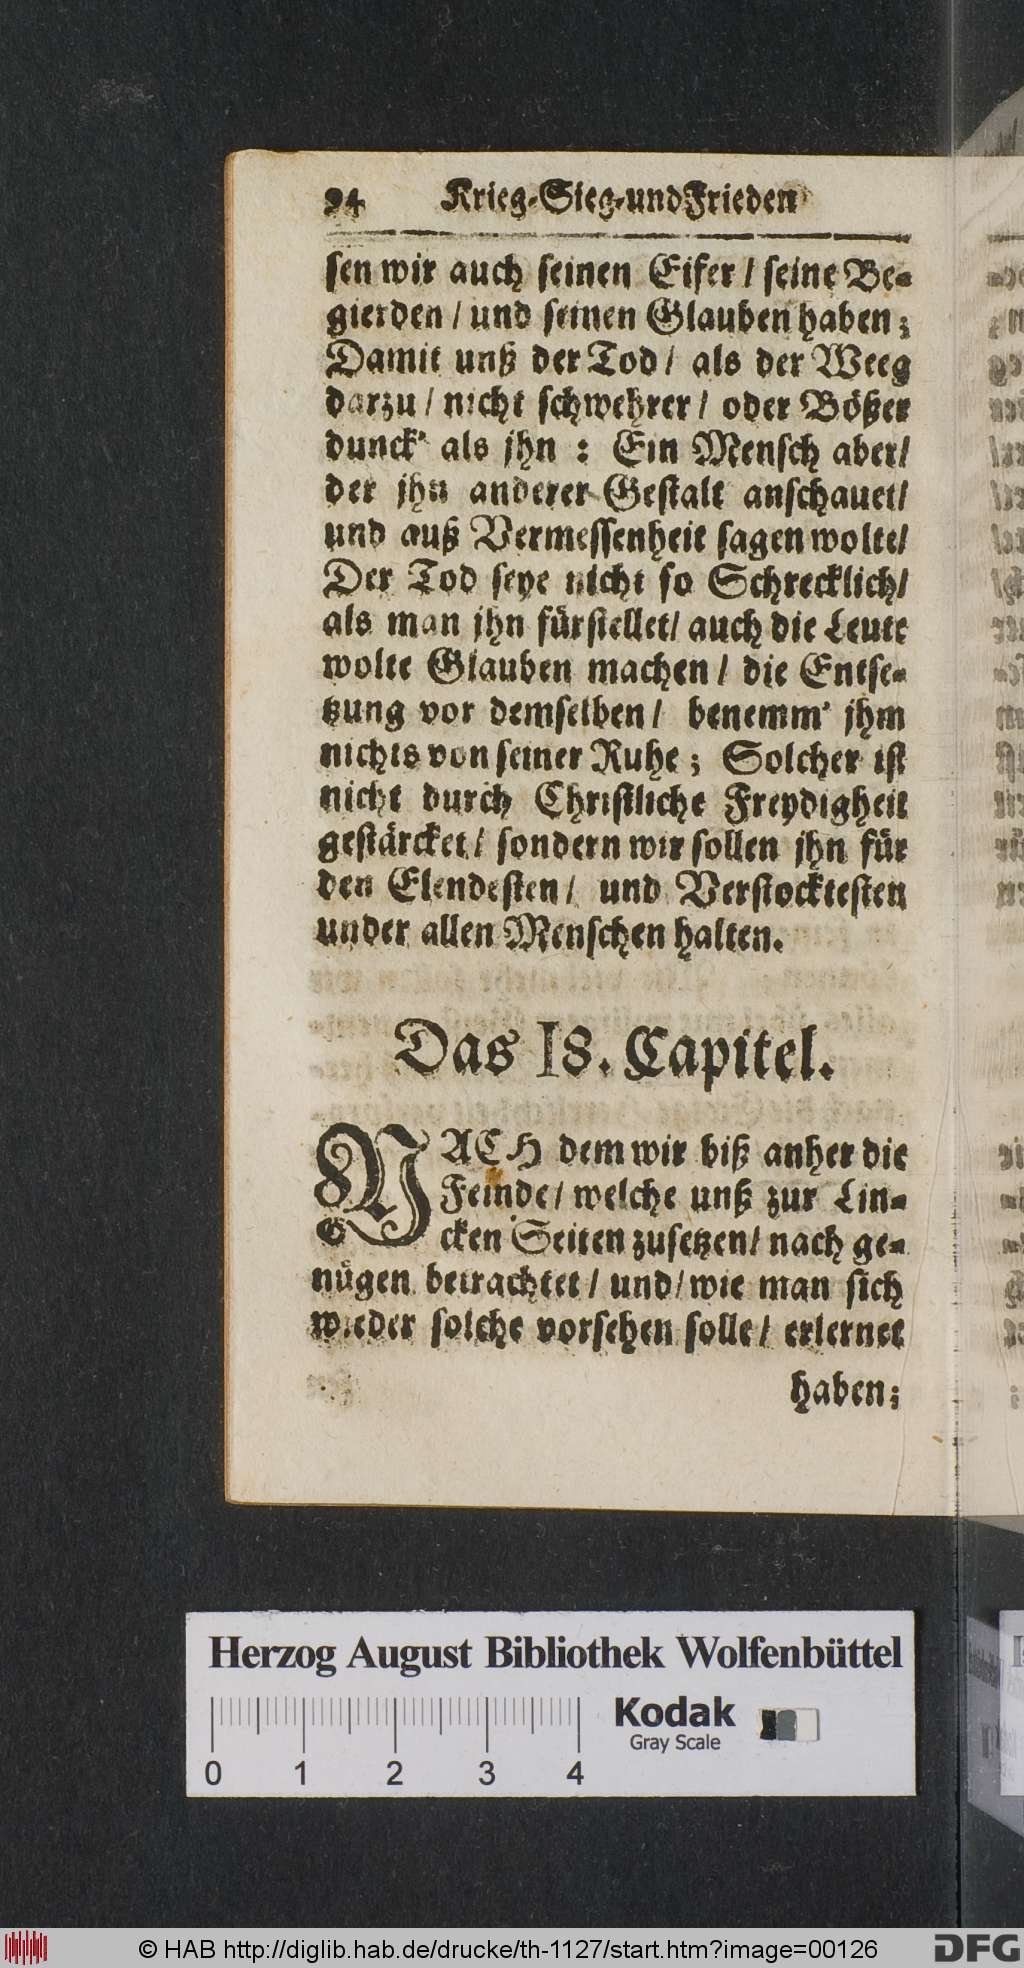 94 Krieg-Sieg-und Frieden
sen wir auch seinen Eifer / seine Be-
gierden / und seinen Glauben haben;
Damit unß der Tod / als der Weeg
darzu / nicht schwehrer / oder Bößer
dunck' als jhn : Ein Mensch aber/
der jhn anderer Gestalt anschauet/
und auß Vermessenheit sagen wolte/
Der Tod seye nicht so Schrecklich/
als man jhn fürstellet/ auch die Leute
wolte Glauben machen / die Entse-
tzung vor demselben / benemm' jhm
nichts von seiner Ruhe; Solcher ist
nicht durch Christliche Freydigheit
gestärcket / sondern wir sollen jhn für
den Elendesten / und Verstocktesten
under allen Menschen halten.
Das 18. Capitel.
NACH dem wir biß anher die
Feinde / welche unß zur Lin-
cken Seiten zusetzen / nach ge-
nügen betrachtet / und / wie man sich
wieder solche vorsehen solle / erlernet
haben;
Herzog August Bibliothek Wolfenbüttel
Kodak
Gray Scale
0 1 2 3 4
© HAB http://diglib.hab.de/drucke/th-1127/start.htm?image=00126
DFG